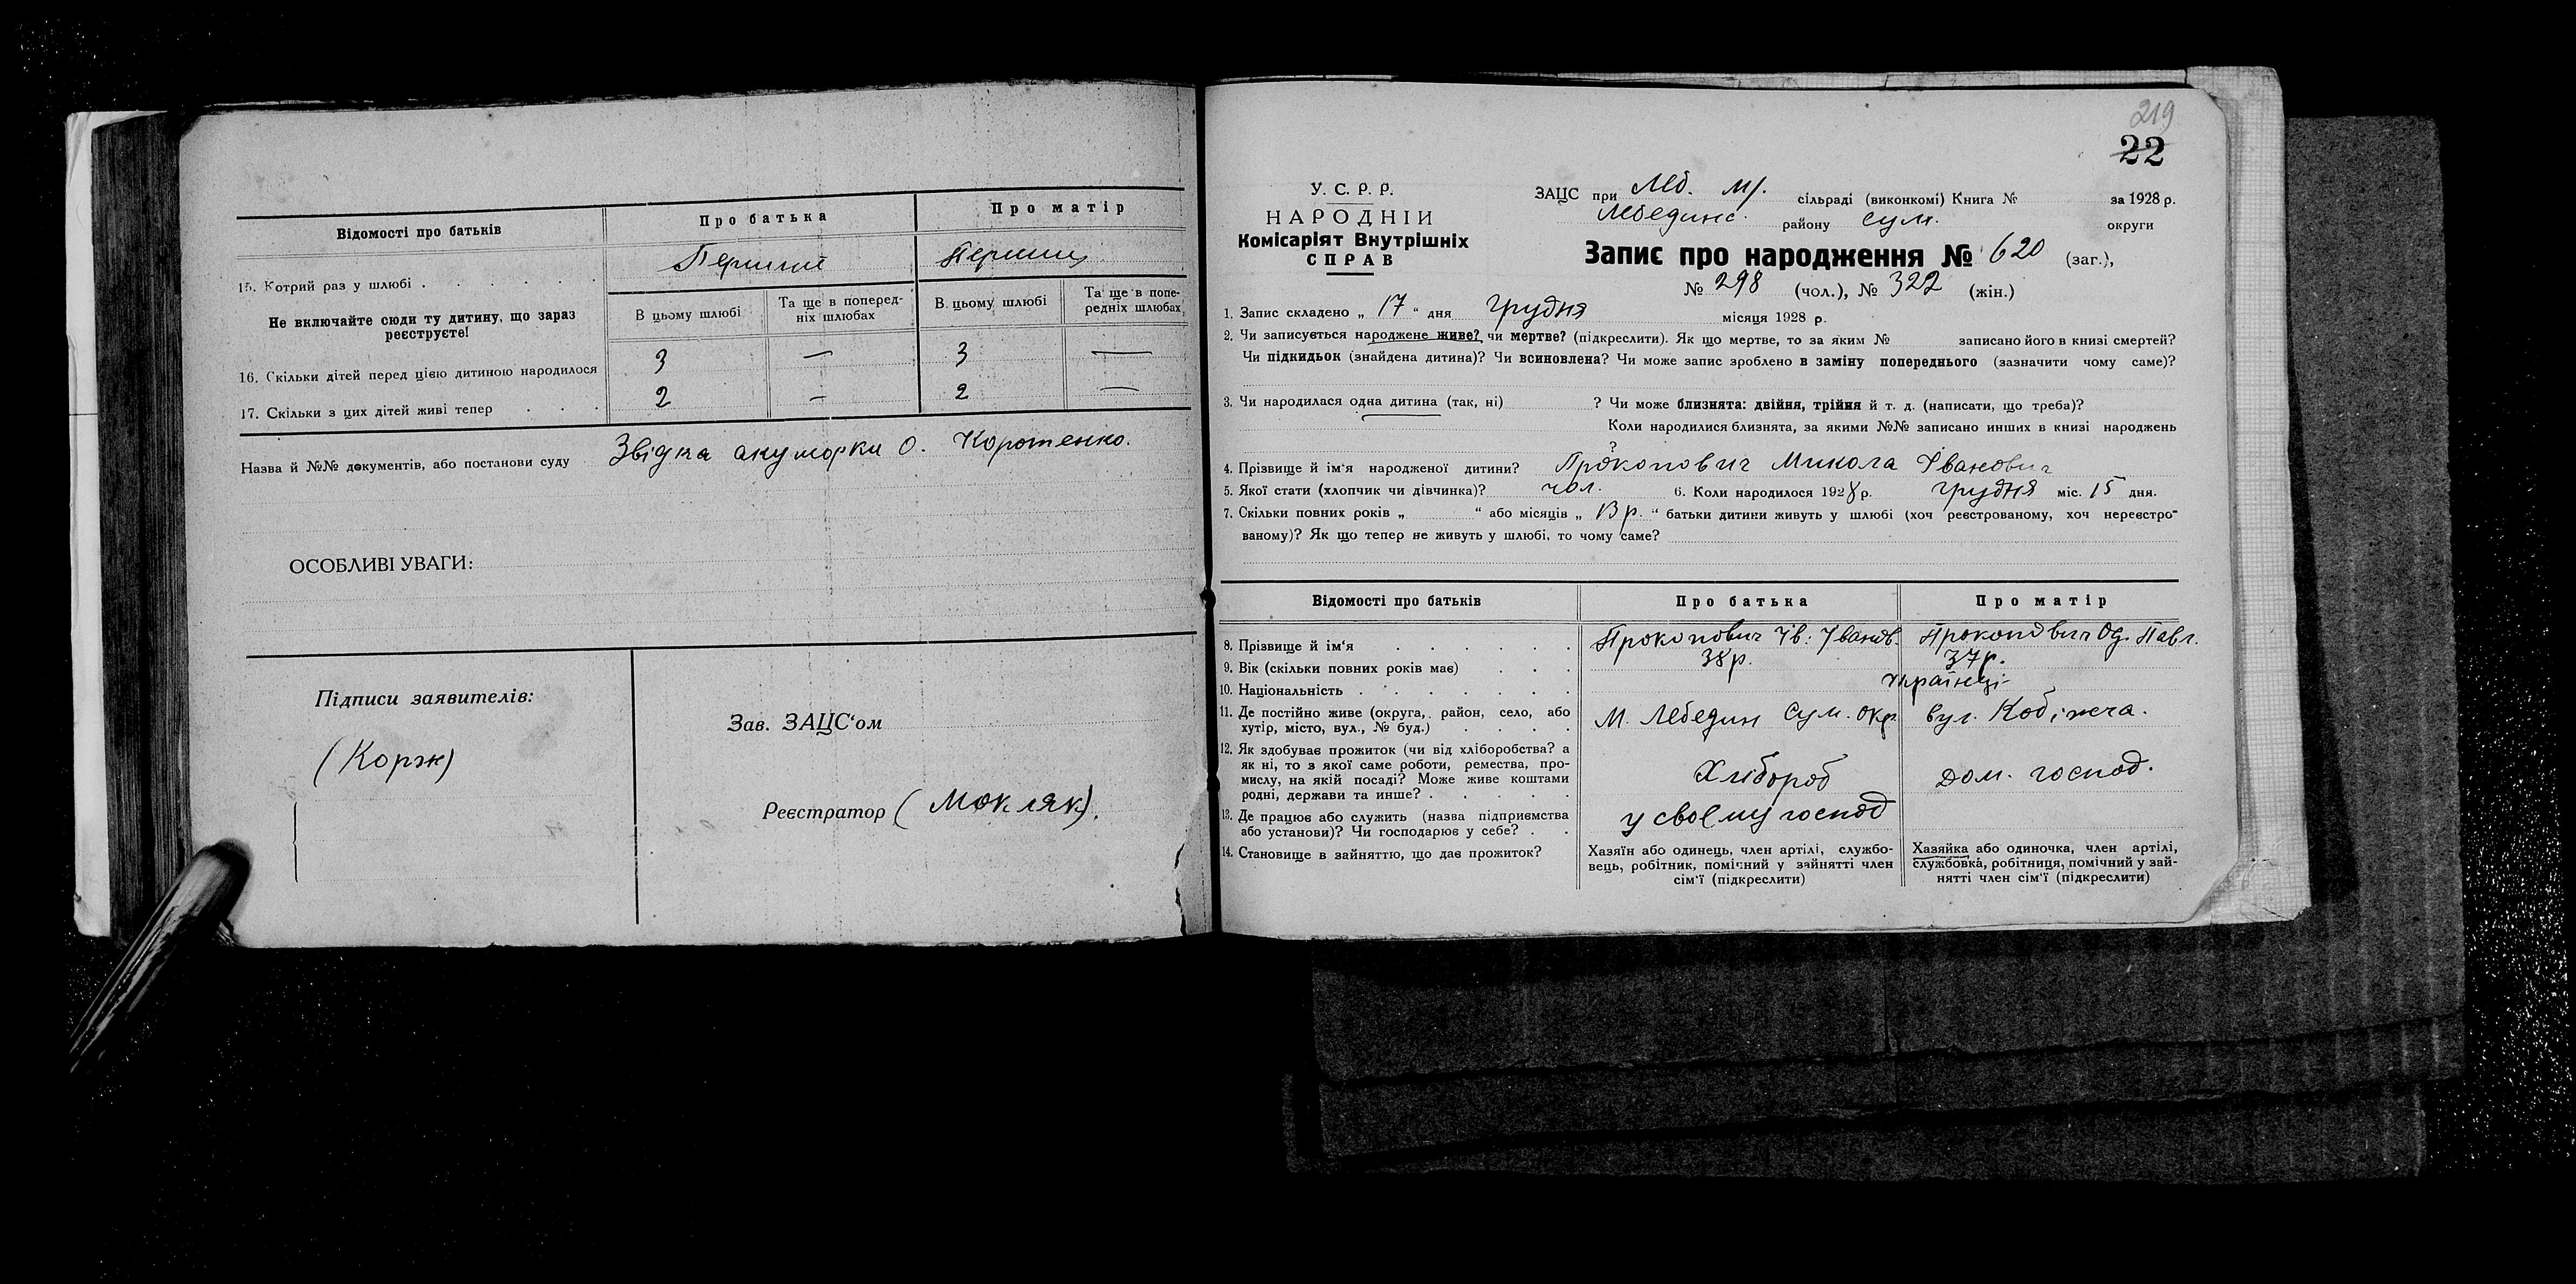 Відомості про батьків
Про батька
Про матір
15. Котрий раз у шлюбі
Перший
Перший
Не включайте сюди ту дитину, що зараз
реєструєте!
В цьому шлюбі
Та ще в поперед-
ніх шлюбах
В цьому шлюбі
Та ще в попе-
редніх шлюбах
16. Скільки дітей перед цією дитиною народилося
3 — 3 —
17. Скільки з цих дітей живі тепер
2 — 2 —
Назва й №№ документів, або постанови суду Звідка акушорки О. Коротенко.
ОСОБЛИВІ УВАГИ:
Підписи заявителів:
(Корж)
Зав. ЗАЦС'ом
Реєстратор (Мокляк).
219
22
У. С. Р. Р.
НАРОДНІЙ
Комісаріят Внутрішніх
СПРАВ
ЗАЦС при Леб. м/. сільраді (виконкомі) Книга № за 1928 р.
Лебединс. району Сум. округи
Запис про народження № 620 (заг.),
№ 298 (чол.), № 322 (жін.)
1. Запис складено „ 17 “ дня Грудня місяця 1928 р.
2. Чи записується народжене живе? чи мертве? (підкреслити). Як що мертве, то за яким № записано його в книзі смертей?
Чи підкидьок (знайдена дитина)? Чи всиновлена? Чи може запис зроблено в заміну попереднього (зазначити чому саме)?
3. Чи народилася одна дитина (так, ні) ? Чи може близнята: двійня, трійня й т. д. (написати, що треба)?
Коли народилися близнята, за якими №№ записано инших в книзі народжень
?
4. Прізвище й ім'я народженої дитини? Прокопович Микола Іванович
5. Якої стати (хлопчик чи дівчинка)? чол. 6. Коли народилося 1928 р. грудня міс. 15 дня.
7. Скільки повних років „ “ або місяців „ 13 р. “ батьки дитини живуть у шлюбі (хоч реєстрованому, хоч нереєстро-
ваному)? Як що тепер не живуть у шлюбі, то чому саме?
Відомості про батьків
Про батька
Про матір
8. Прізвище й ім'я
Прокопович Ів. Іванов.
Прокопович Од. Павл.
9. Вік (скільки повних років має)
38 р.
37 р.
10. Національність
Українці
11. Де постійно живе (округа, район, село, або
хутір, місто, вул., № буд.)
М. Лебедин Сум. окр
вул. Кобижча.
12. Як здобуває прожиток (чи від хліборобства? а
як ні, то з якої саме роботи, ремества, про-
мислу, на якій посаді? Може живе коштами
родні, держави та инше?
Хлібороб
Дом. господ.
13. Де працює або служить (назва підприємства
або установи)? Чи господарює у себе?
у своєму господ
14. Становище в зайняттю, що дає прожиток?
Хазяїн або одинець, член артілі, службо-
вець, робітник, помічний у зайнятті член
сім'ї (підкреслити)
Хазяйка або одиночка, член артілі,
службовка, робітниця, помічний у зай-
нятті член сім'ї (підкреслити)